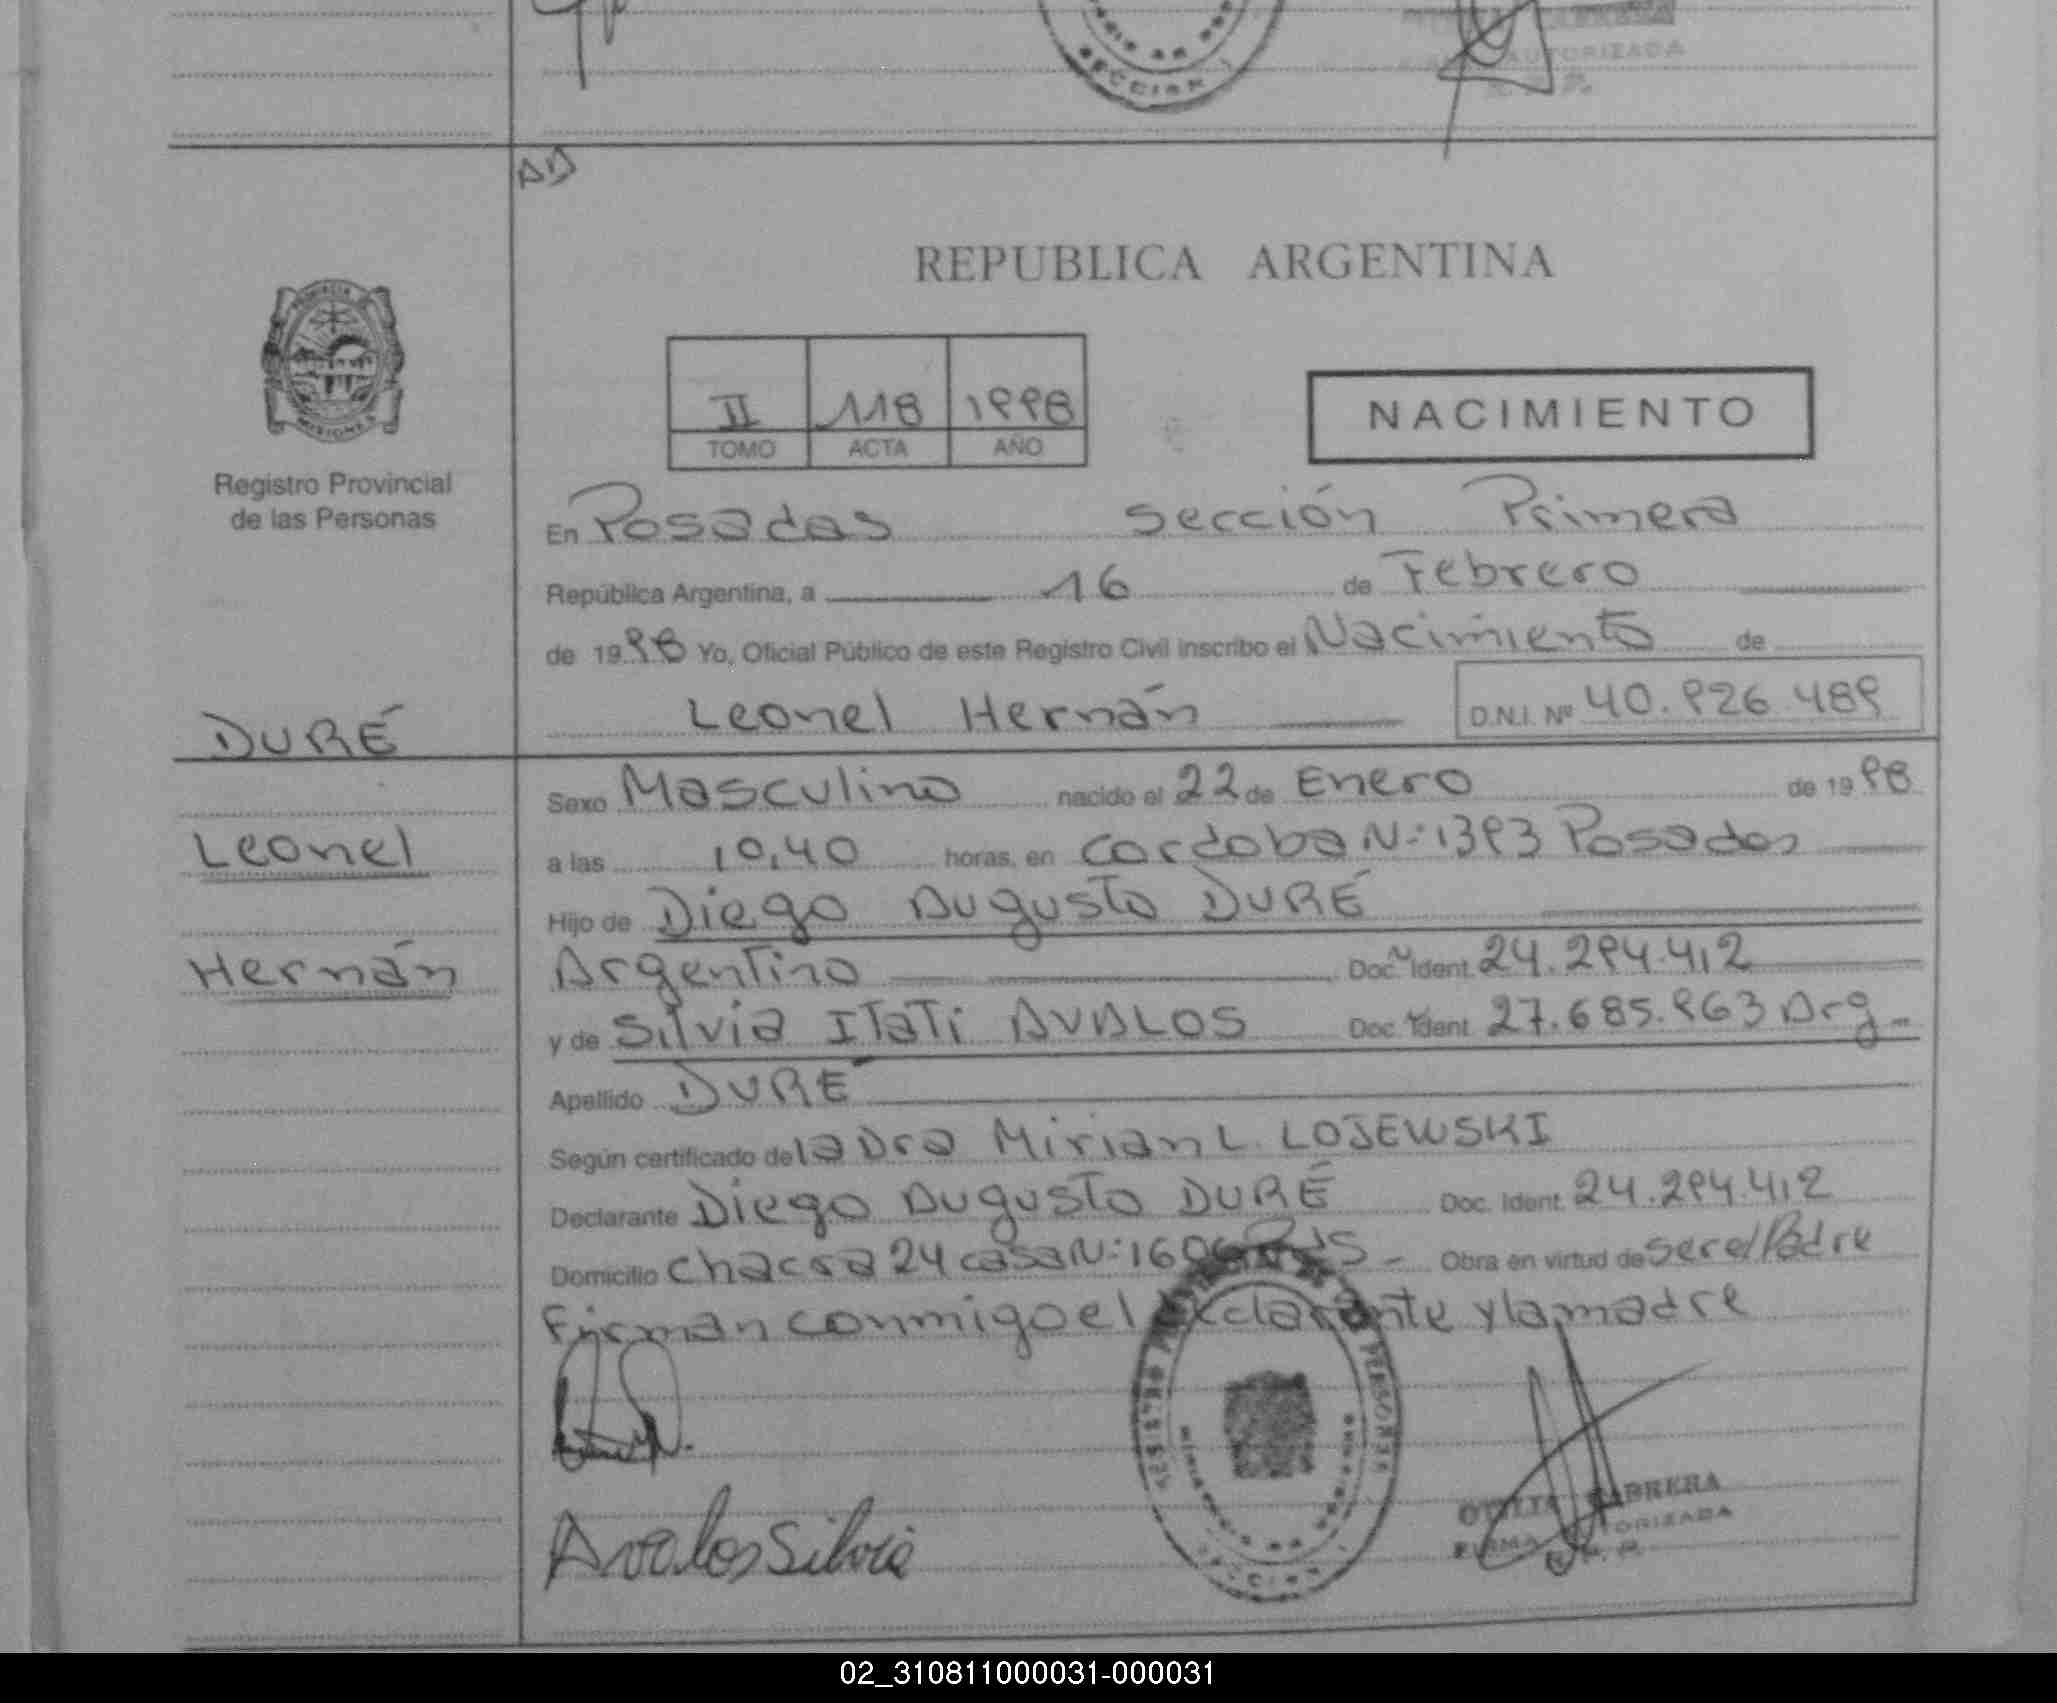 SECCION 1
AUTORIZADA
AD
REPUBLICA ARGENTINA
PROVINCIA DE
MISIONES
II 118 1998
TOMO ACTA AÑO
NACIMIENTO
Registro Provincial
de las Personas
En Posadas sección Primera
República Argentina, a 16 de Febrero
de 1998 Yo, Oficial Público de este Registro Civil inscribo el Nacimiento de
Leonel Hernán D.N.I. Nº 40.926.489
DURÉ
Sexo Masculino nacido el 22 de Enero de 1998
Leonel
a las 10,40 horas, en Cordoba N:1393 Posadas
Hijo de Diego Augusto DURÉ
Hernán
Argentino Doc. Ident. 24.294.412
y de Silvia ITaTi AVALOS Doc. Ident. 27.685.963 Arg
Apellido DURÉ
Según certificado de la Dra Mirian L. LOJEWSKI
Declarante Diego Augusto DURÉ Doc. Ident. 24.294.412
Domicilio chacra 24 casa N:1606 Obra en virtud de ser el Padre
Firman conmigo el declarante y la madre
PERSONAS
Avalos Silvia
CABRERA
FIRMA AUTORIZADA
02_310811000031-000031